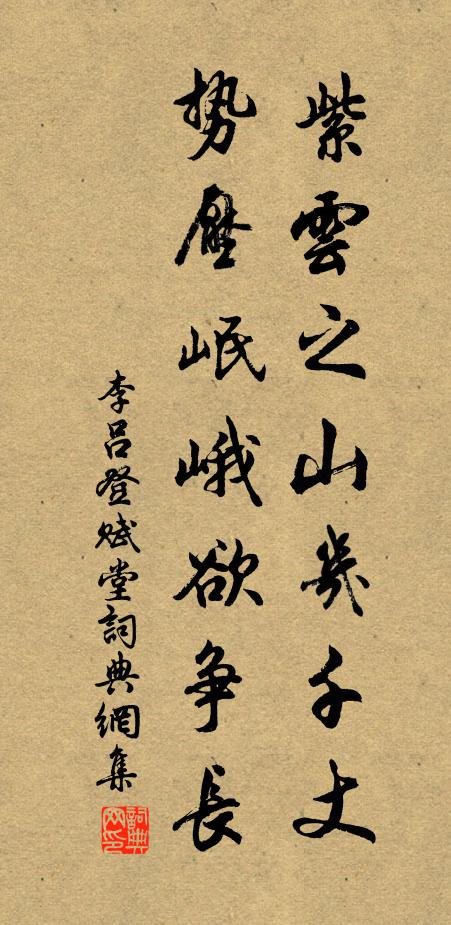 紫雲之山幾千丈
勢壓岷峨欲争長
李吕登賦堂詞典網集
詞典網印